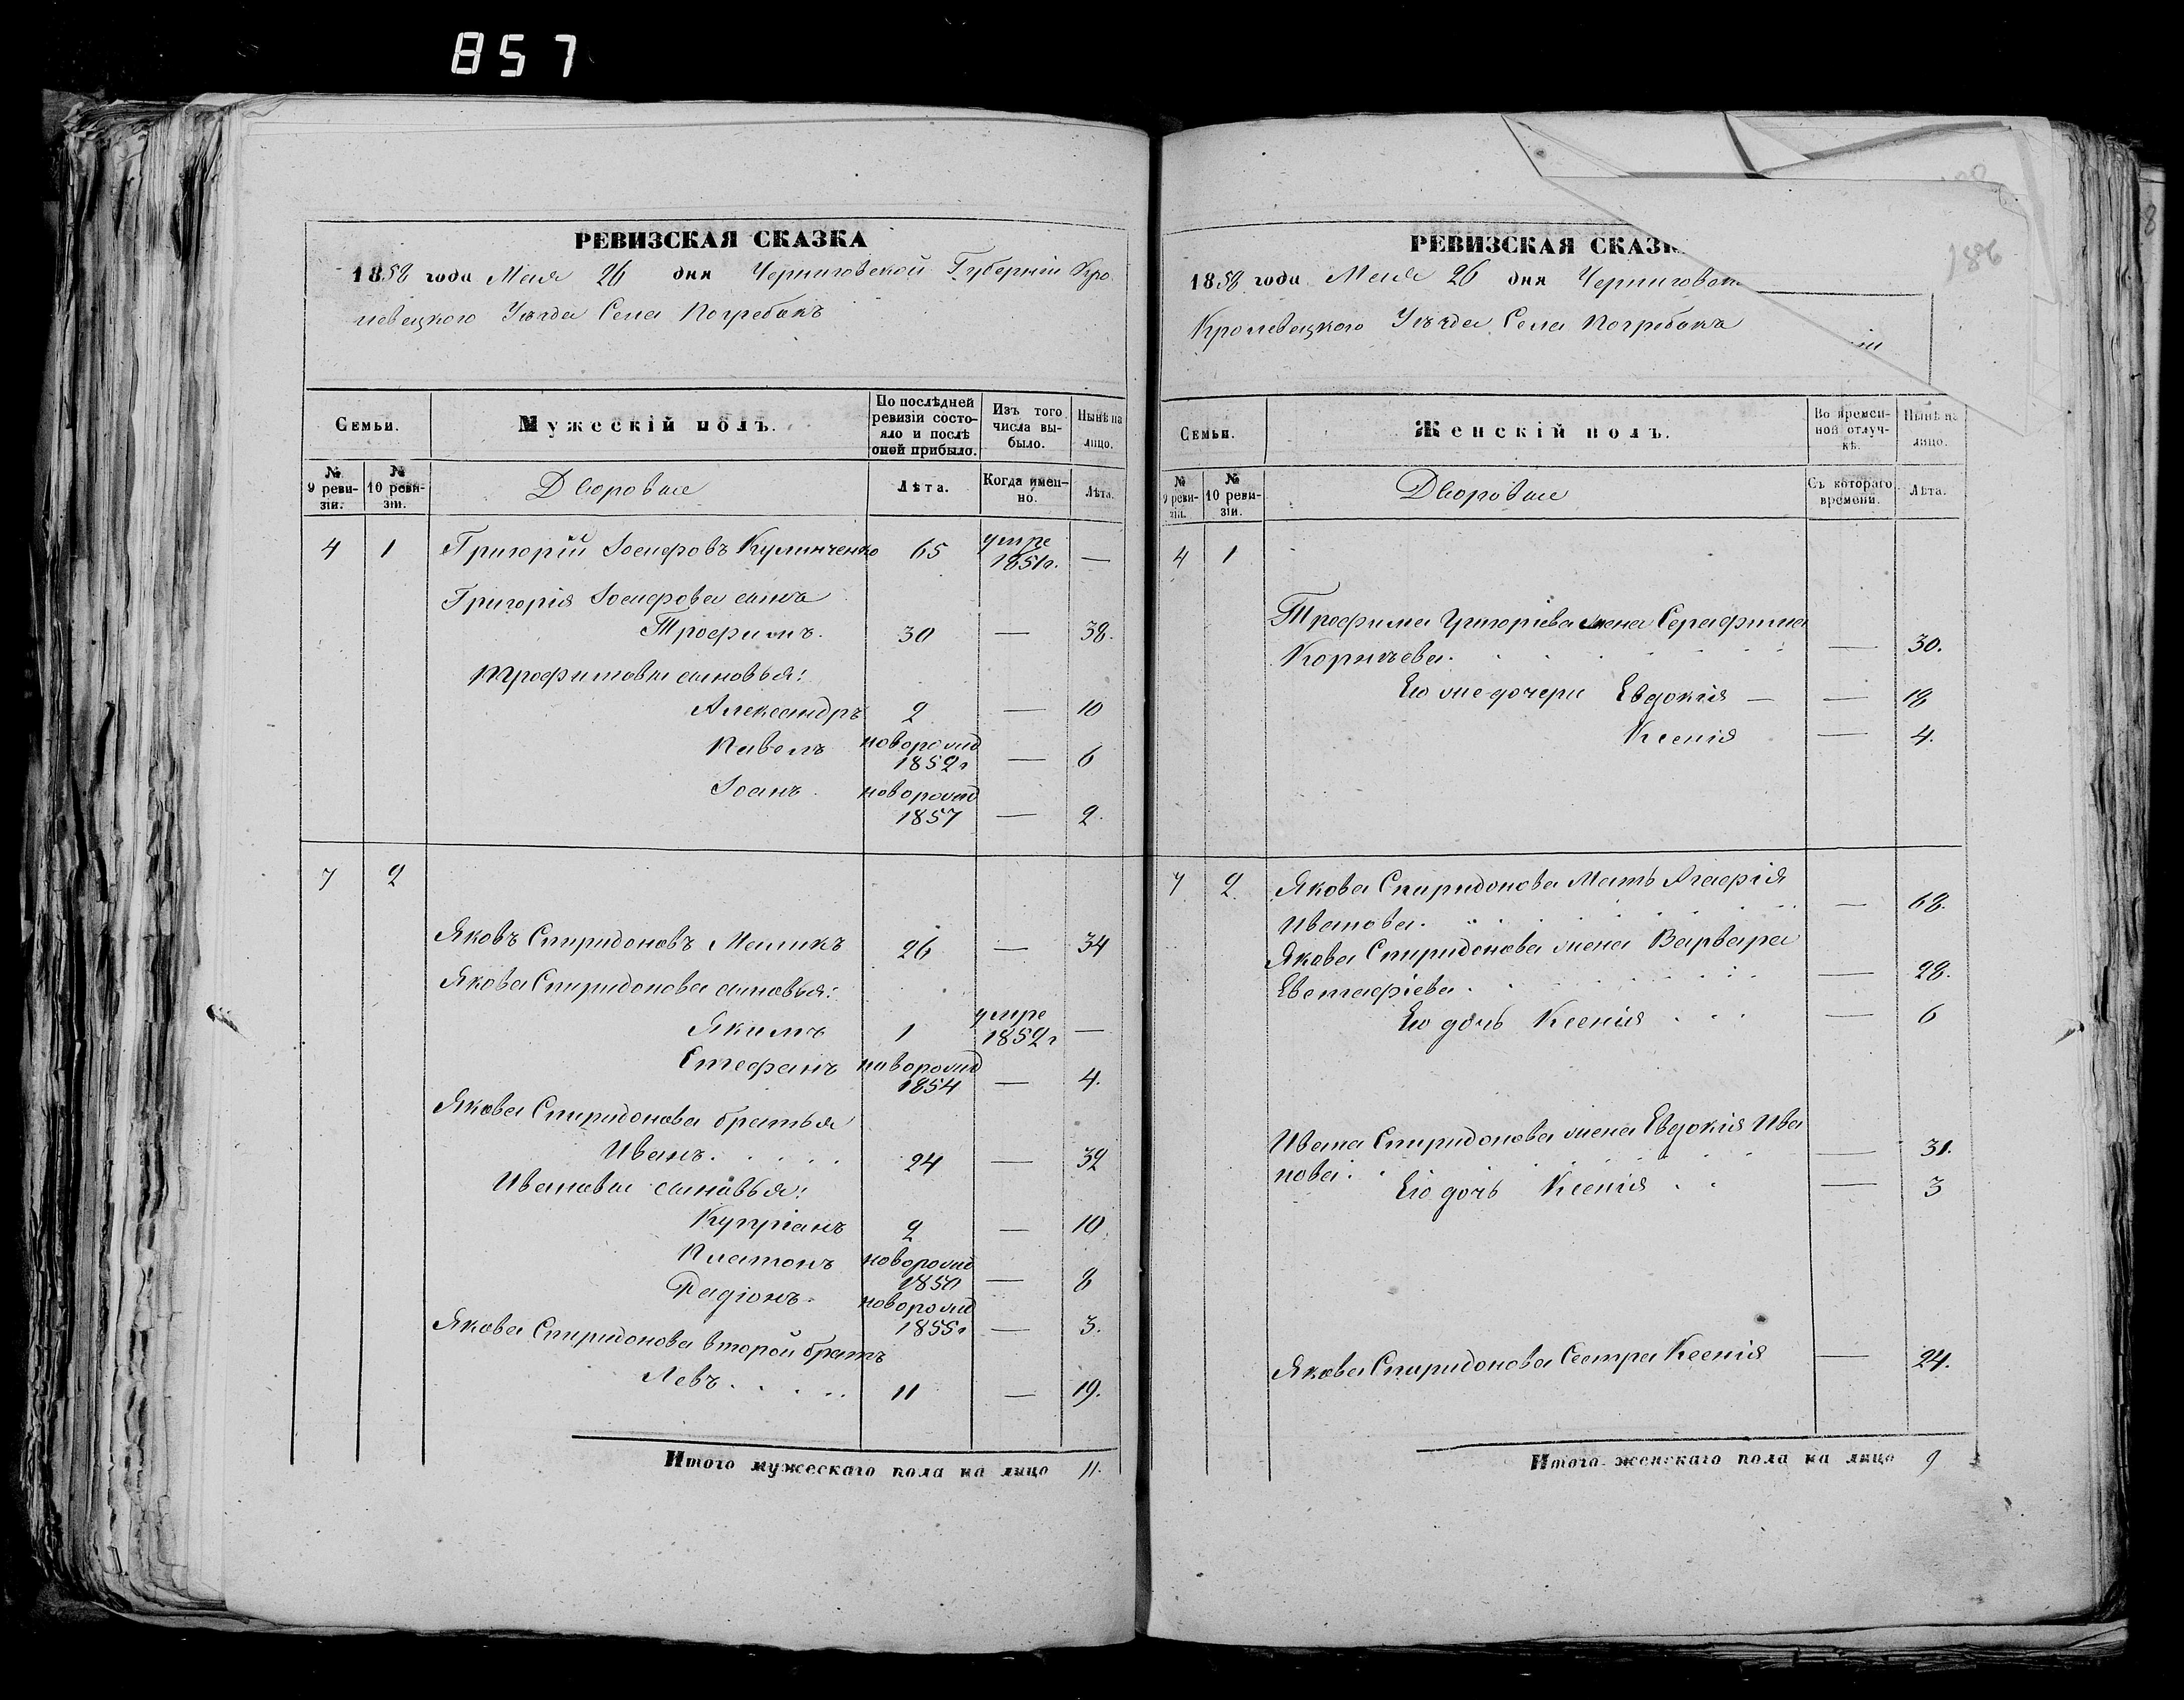 857
РЕВИЗСКАЯ СКАЗКА
1858 года Мая 26 дня Черниговской Губерніи Кро
левецкого Уѣзда Села Погребокъ
Семьи.
Мужескій полъ.
По послѣдней ревизіи состояло и послѣ оной прибыло.
Изъ того числа выбыло.
Нынѣ на лицо.
№ 9 ревизіи.
№ 10 ревизіи.
Дворовые
Лѣта.
Когда именно.
Лѣта.
4 1 Григорій Іосифовъ Кулинченко 65 умре 1851г. —
Григорія Іосифова сынъ
Трофимъ. 30 — 38.
Трофимовы сыновья:
Александръ 2 — 10
Павелъ новорожд 1852г — 6
Іоанъ. новорожд 1857 — 2.
7 2
Яковъ Спиридоновъ Маликъ 26 — 34
Якова Спиридонова сыновья:
Якимъ 1 умре 1852г —
Стефанъ новорожд 1854 — 4.
Якова Спиридонова братья
Иванъ. 24 — 32
Ивановы сыновья:
Купріанъ 2 — 10.
Платонъ новорожд 1850 — 8
Радіонъ. новорожд 1855г — 3.
Якова Спиридонова второй братъ
Левъ. 11 — 19.
Итого мужескаго пола на лицо 11.
РЕВИЗСКАЯ СКАЗК
1858 года Мая 26 дня Черниговск
Кролевецкого Уѣзда Села Погребокъ
186
Семьи.
Женскій полъ.
Во временной отлучкѣ.
Нынѣ на лицо.
№ 9 ревизіи.
№ 10 ревизіи.
Дворовые
Съ котораго времени.
Лѣта.
4 1
Трофима Григоріева жена Серафима
Корнѣева. — 30.
Его же дочери Евдокія — — 18
Ксенія — 4.
7 2. Якова Спиридонова Мать Агафія
Иванова. — 68.
Якова Спиридонова жена Варвара
Евстафіева. — 28.
Его дочь Ксенія — 6
Ивана Спиридонова жена Евдокія Ива
нова. — 31.
Его дочь Ксенія — 3
Якова Спиридонова Сестра Ксенія — 24.
Итого женскаго пола на лицо 9